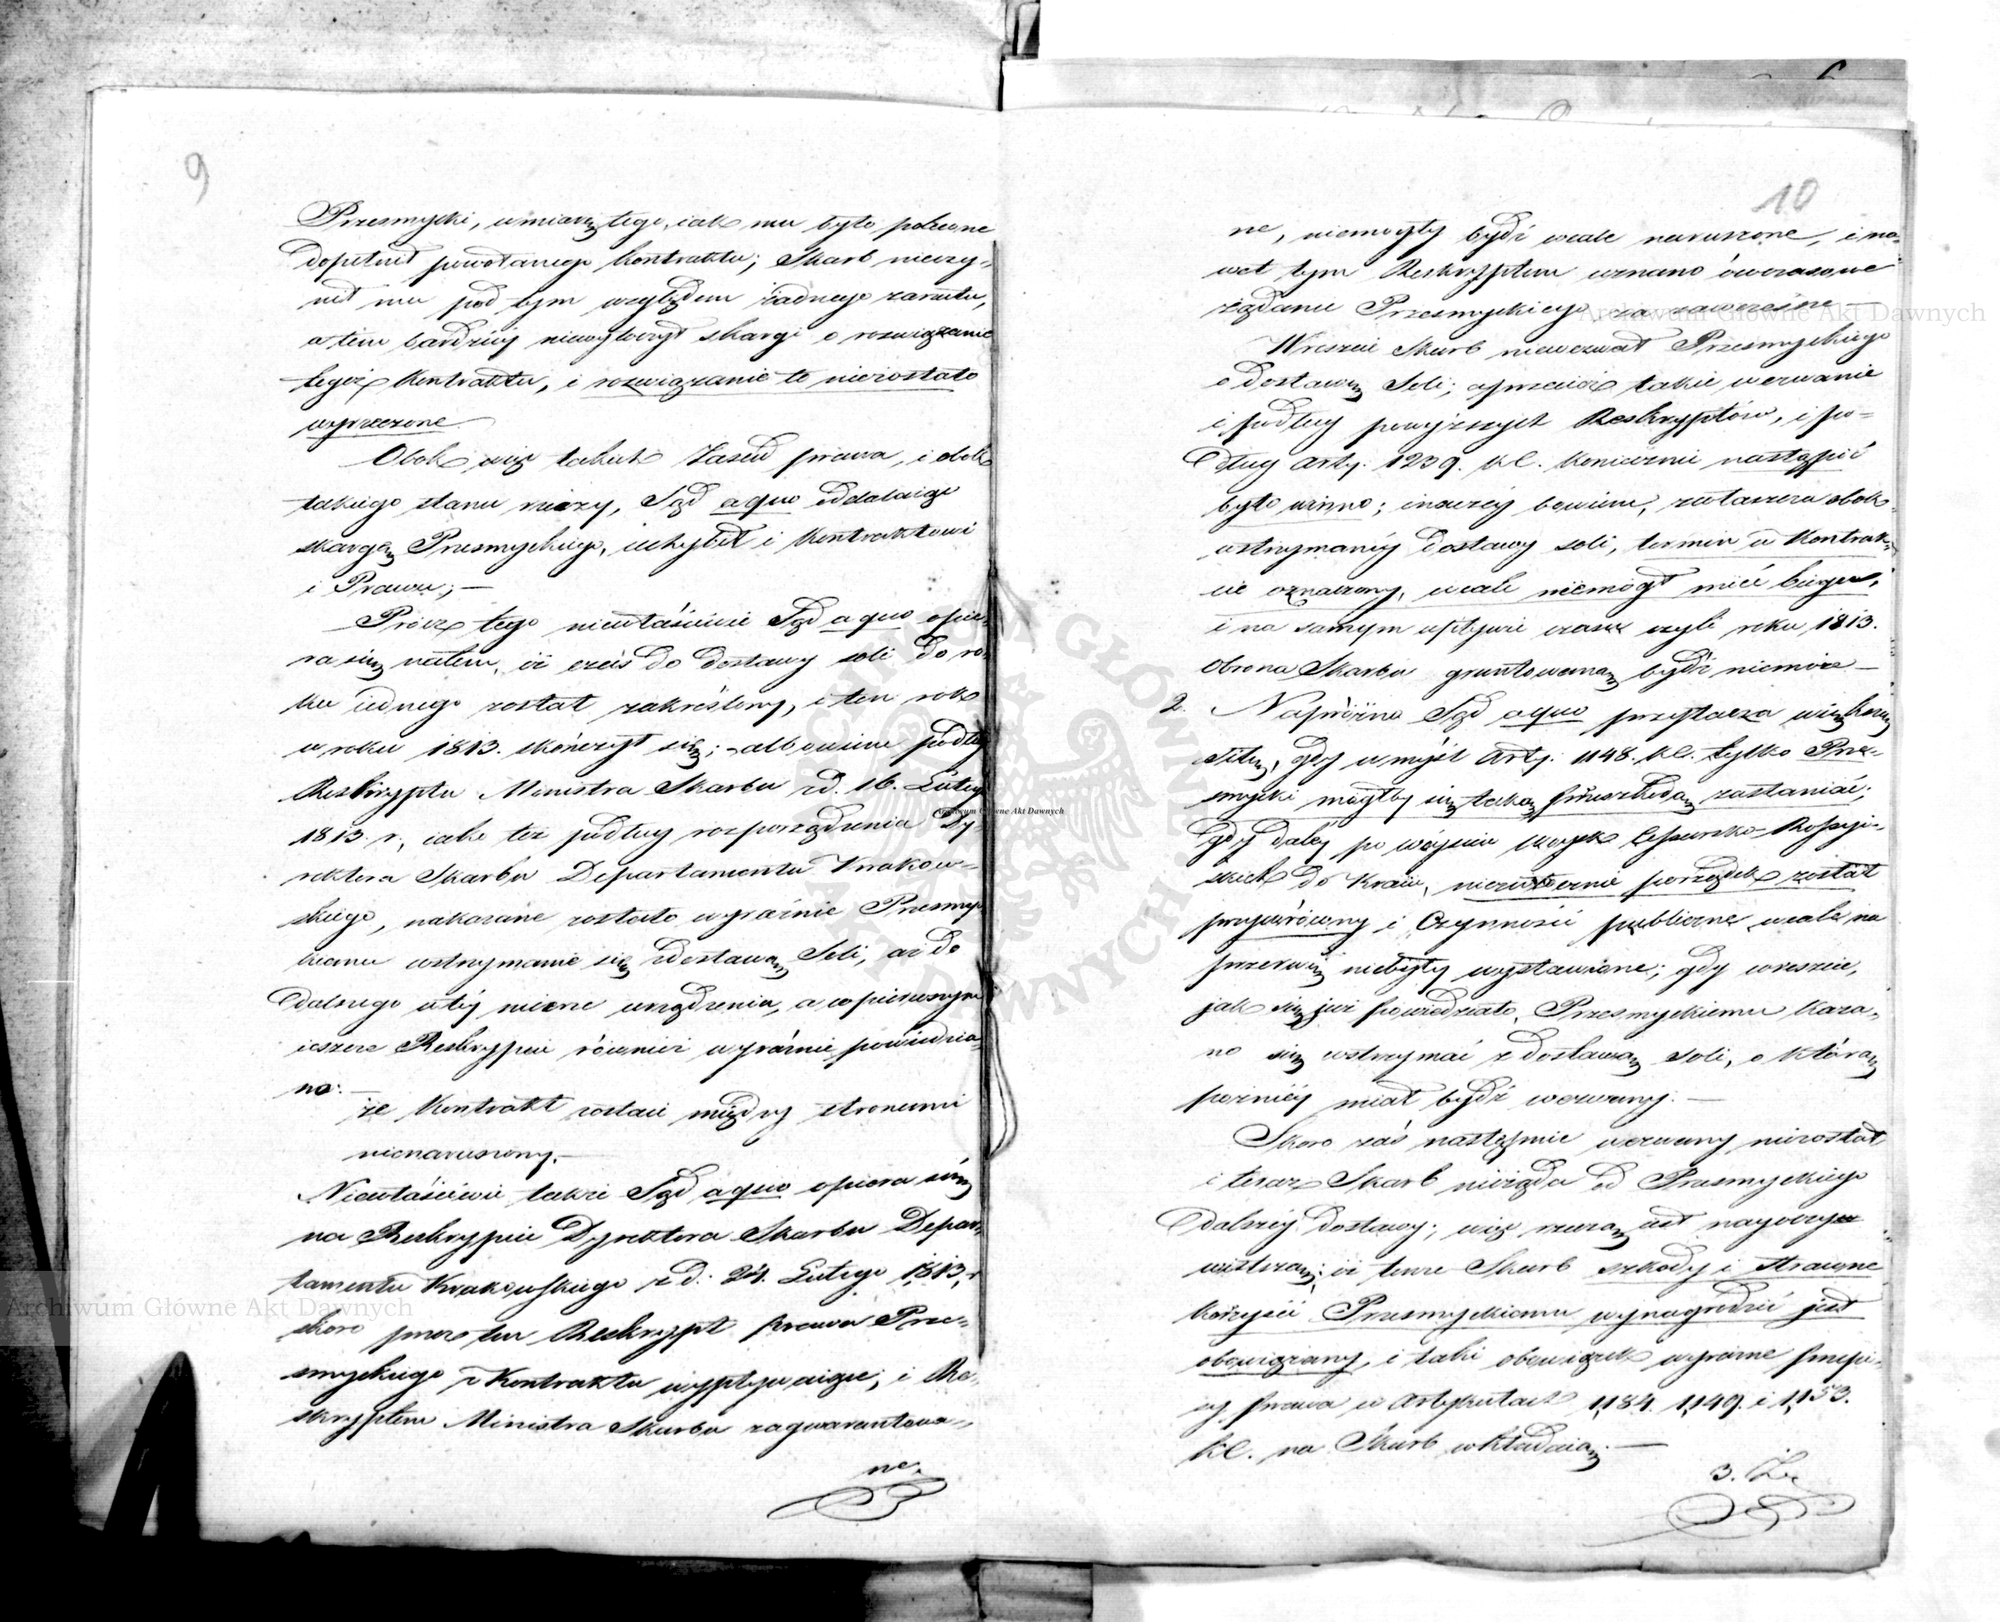 9
Przesmycki, w miarę tego, iak mu było polecone
dopełnił powołanego kontraktu; Skarb nieczy-
nił mu pod tym względem żadnego zarzutu,
a tem bardziéy niewytoczył skargi o rozwiązanie
tegoż kontraktu, i rozwiązanie to niezostało
wyrzeczone
Obok więc takich Zasad prawa, i obok
takiego stanu rzeczy, Sąd a quo oddalaiąc
skargę Przesmyckiego, uchybił i Kontraktowi
i Prawu; —
Prócz tego niewłaściwie Sąd a quo opie-
ra się na tem, iż czas do dostawy soli do ro-
ku iednego został zakreślony, i ten rok
w roku 1813. skończył się; albowiem podług
Reskryptu Ministra Skarbu z d. 16. Lutego
1813. r., iako też podług rozporządzenia Dy-
rektora Skarbu Departamentu Krakow-
skiego, nakazane zostało wyraźnie Przesmyc-
kiemu wstrzymanie się z dostawą Soli, aż do
dalszego w téy mierze urządzenia, a w pierwszym
ieszcze Reskrypcie również wyraźnie powiedzia-
no: —
że Kontrakt zostaie między stronami
nienaruszony. —
Niewłaściwie także Sąd a quo opiera się
na Reskrypcie Dyrektora Skarbu Depar-
tamentu Krakowskiego z d. 24. Lutego 1813. r
skoro przez ten Reskrypt prawa Prze-
smyckiego z Kontraktu wypływaiące, i Re-
skryptem Ministra Skarbu zagwarantowa-
ne,
10
ne, niemogły bydź wcale naruszone, i na-
wet tym Reskryptem uznano ówczasowe
żądanie Przesmyckiego za zawczesne —
Wreszcie Skarb niewezwał Przesmyckiego
o dostawę Soli; a przecież takie wezwanie
i podług powyższych Reskryptów, i po-
dług Arty. 1239. KC. koniecznie nastąpić
było winno; inaczéy bowiem, zwłaszcza obok
wstrzymanéy dostawy soli, termin w Kontrak-
cie oznaczony, wcale niemógł mieć biegu,
i na samym upływie czasu czyli roku 1813.
obrona Skarbu gruntowaną bydź niemoże —
2. Napróżno Sąd a quo przytacza większą
siłę, gdy w myśl Arty. 1148. KC. tylko Prze-
smycki mógłby się taką przeszkodą zasłaniać;
gdy daléy po wéyściu woysk Cesarsko-Rossyi-
skich do Kraiu, niezwłocznie porządek został
przywrócony i Czynności publiczne wcale na
przerwę niebyły wystawione; gdy wreszcie,
jak się już powiedziało, Przesmyckiemu kaza-
no się wstrzymać z dostawą soli, o którą
poźniéy miał bydź wezwany. —
Skoro zaś następnie wezwany niezostał
i teraz Skarb nieżąda od Przesmyckiego
dalszéy dostawy; więc rzeczą iest nayoczy-
wistszą; iż tenże Skarb szkody i stracone
korzyści Przesmyckiemu wynagrodzić jest
obowiązany, i taki obowiązek wyraźne przepi-
sy prawa w Artykułach 1,184. 1,149. i 1,153.
KC. na Skarb wkładaią. —
3. Że
Archiwum Główne Akt Dawnych
Archiwum Główne Akt Dawnych
Archiwum Główne Akt Dawnych
ARCHIWUM GŁÓWNE AKT DAWNYCH